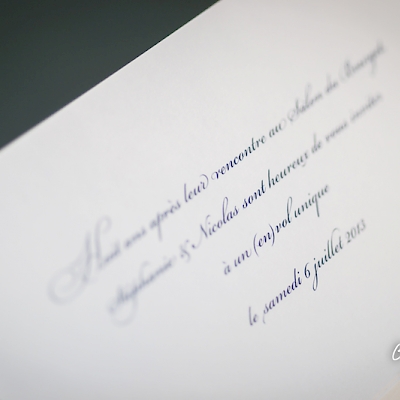 Huit ans après leur rencontre au Salon du Bourget
Stéphanie & Nicolas sont heureux de vous inviter
à un (en)vol unique
le samedi 6 juillet 2013